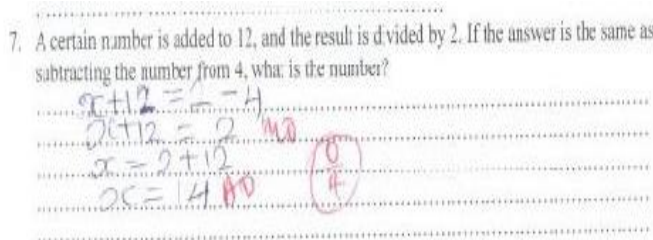 7. A certain number is added to 12, and the result is divided by 2. If the answer is the same as
subtracting the number from 4, what is the number?
x+12 = 2 - 4
x+12 = 2 M0
x = 2+12
x = 14 A0
0/4